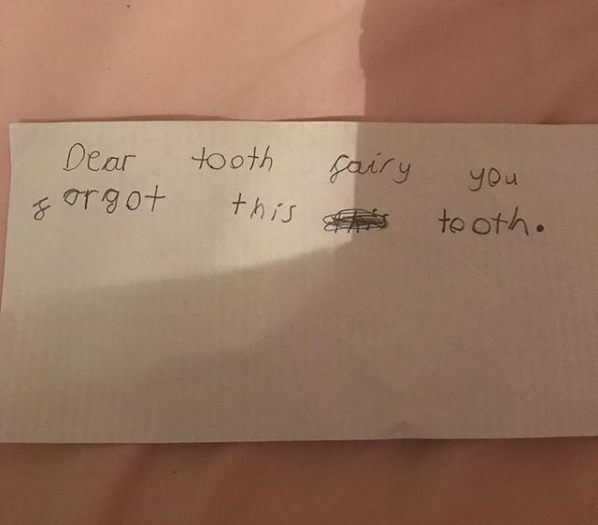 Dear tooth fairy you
forgot this this tooth.